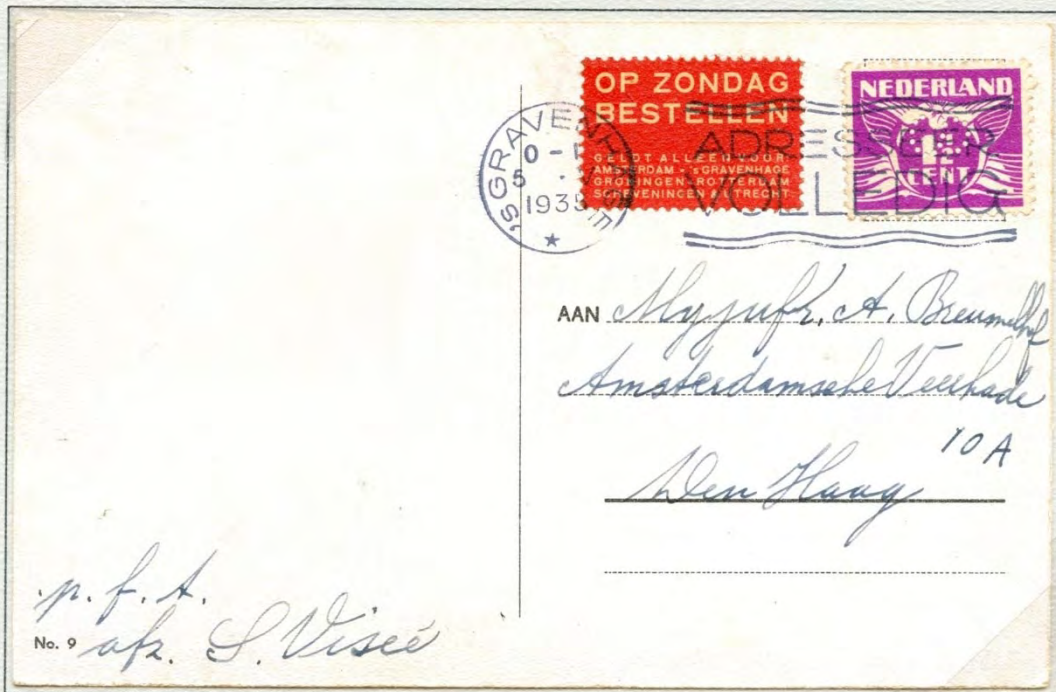 OP ZONDAG
BESTELLEN
GELDT ALLEEN VOOR:
AMSTERDAM - 'sGRAVENHAGE
GRONINGEN - ROTTERDAM
SCHEVENINGEN & UTRECHT
NEDERLAND
1½
CENT
'SGRAVENHAGE
1935
ADRESSEER
VOLLEDIG
AAN Mejjufr. A.
Amsterdamsche Veerkade
10 A
Den Haag
p. f. A.
No. 9 afz. S.Viseé